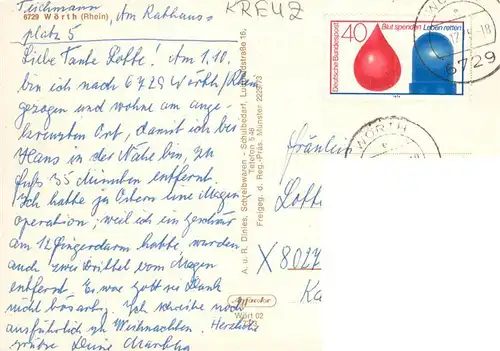 Teichmann
6729 Wörth (Rhein), Am Rathaus-
platz 5
KREUZ
Liebe Tante Lotte! Am 1.10.
bin ich nach 6729 Wörth/Rhein
gezogen und wohne am ange-
gebenen Ort, damit ich bei
Hans in der Nähe bin, zu
Fuß 35 Minuten entfernt.
Ich hatte zu Ostern eine Magen
operation, weil ich ein Geschwür
am 12 Fingerdarm hatte, wurden
auch zwei Drittel vom Magen
entfernt. Es war Gott sei Dank
nicht bösartig. Ich schreibe noch
ausführlich zu Weihnachten. Herzliche
Grüße Deine
A. u. R. Dinies, Schreibwaren - Schulbedarf, Ludwigstraße 16,
Telefon 5 46
Freigeg. d. Reg.-Präs. Münster 2229/73
Wört 02
Deutsche Bundespost
40 Blut spenden Leben retten
1974
6729
WÖRTH
Fräulein
Lotte
X 8027